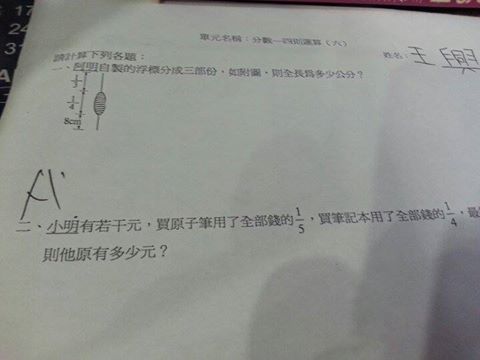 17
24
31
單元名稱：分數—四則運算（六）
姓名：王興
請計算下列各題：
一、阿明自製的浮標分成三部份，如附圖，則全長為多少公分？
1/3
1/4
8cm
二、小明有若干元，買原子筆用了全部錢的1/5，買筆記本用了全部錢的1/4，最
則他原有多少元？